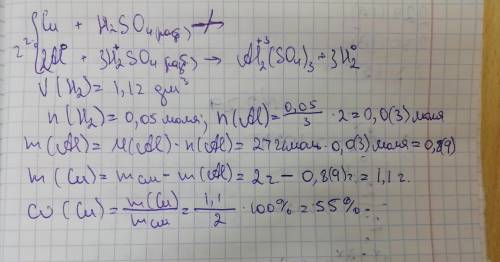 2г { Cu + H₂SO₄(разб) ↛
2Al⁰ + 3H₂⁺SO₄(разб) → Al₂⁺³(SO₄)₃ + 3H₂⁰
V(H₂) = 1,12 дм³
n(H₂) = 0,05 моля; n(Al) = 0,05/3 · 2 = 0,0(3) моля
m(Al) = M(Al) · n(Al) = 27 г/моль · 0,0(3) моля = 0,8(9)
m(Cu) = mсм - m(Al) = 2г - 0,8(9)г = 1,1 г.
ω(Cu) = m(Cu)/mсм = 1,1/2 · 100% = 55%